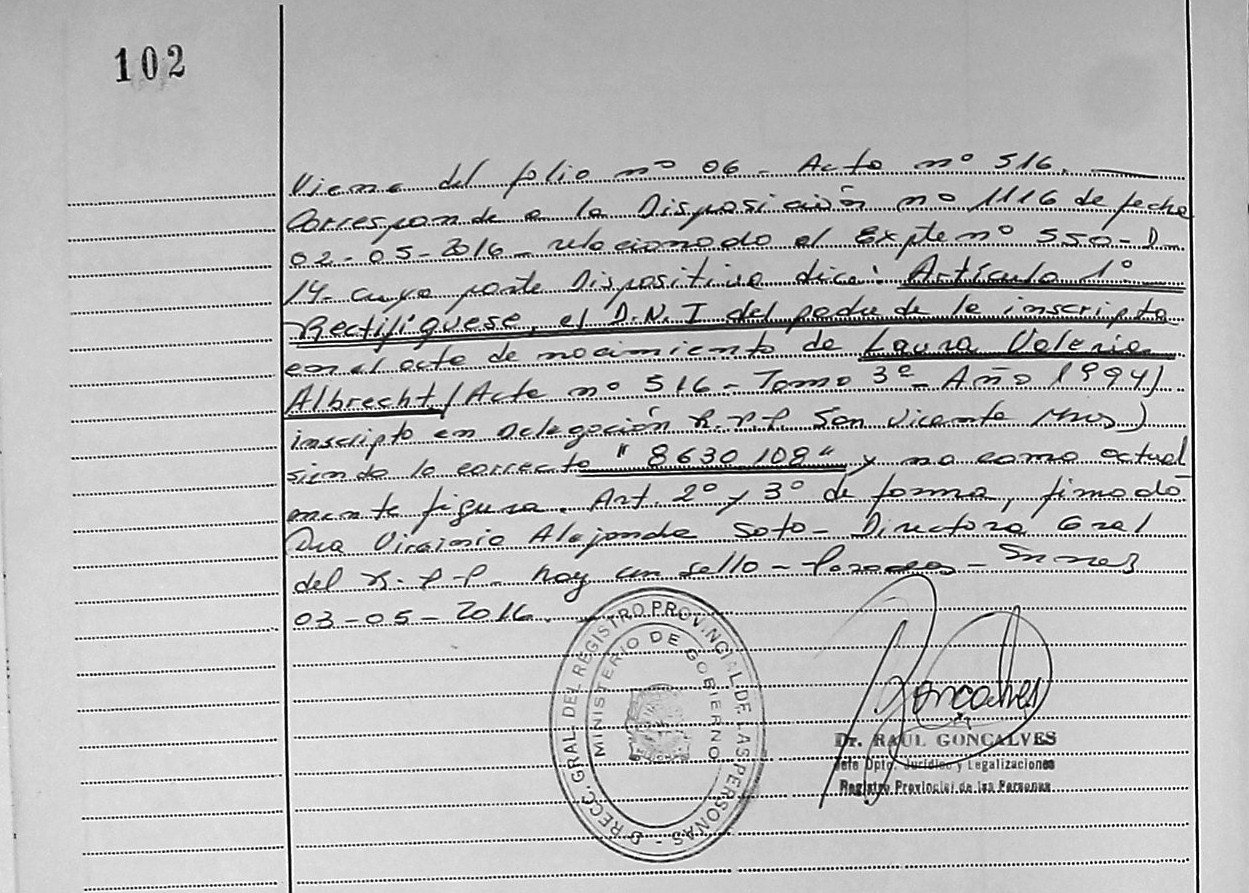 102
Viene del folio nº 06 - Acta nº 516.
Corresponde a la Disposición nº 1116 de fecha
02-05-2016 - relacionado al Expte nº 550-D-
14- cuya parte Dispositiva dice: Artículo 1º
Rectifíquese, el D.N.I del padre de la inscripta
en el acta de nacimiento de Laura Valeria
Albrecht (Acta nº 516 - Tomo 3º - Año 1994)
inscripta en Delegación R.P.P San Vicente Mnes)
siendo lo correcto "8630108" y no como actual
mente figura. Art. 2º y 3º de forma, firmado
Dra Virginia Alejandra Soto - Directora Gral
del R.P.P. hay un sello - Posadas - Mnes
03-05-2016.
DIRECC. GRAL. DEL REGISTRO PROVINCIAL DE LAS PERSONAS -
MINISTERIO DE GOBIERNO
Goncalves
Dr. RAUL GONCALVES
Jefe Dpto. Jurídico y Legalizaciones
Registro Provincial de las Personas